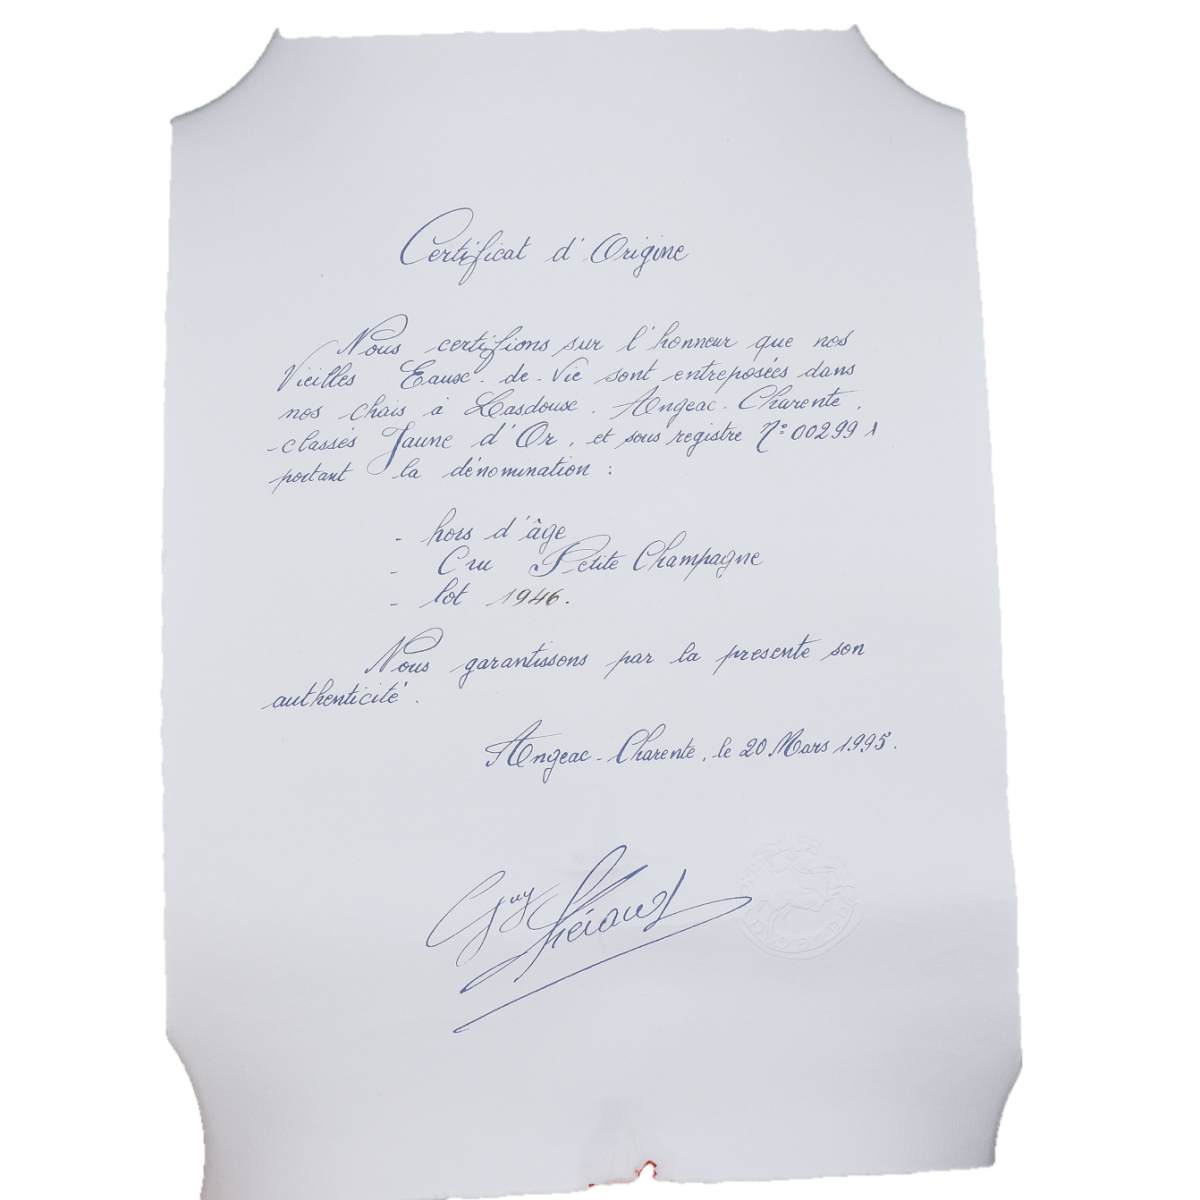 Certificat d'Origine
Nous certifions sur l'honneur que nos
Vieilles Eaux-de-Vie sont entreposées dans
nos chais à Lasdoux. Angeac-Charente,
classés Jaune d'Or, et sous registre N° 00299
portant la dénomination :
- hors d'âge
- Cru Petite Champagne
- lot 1946.
Nous garantissons par la presente son
authenticité.
Angeac-Charente, le 20 Mars 1995.
Guy